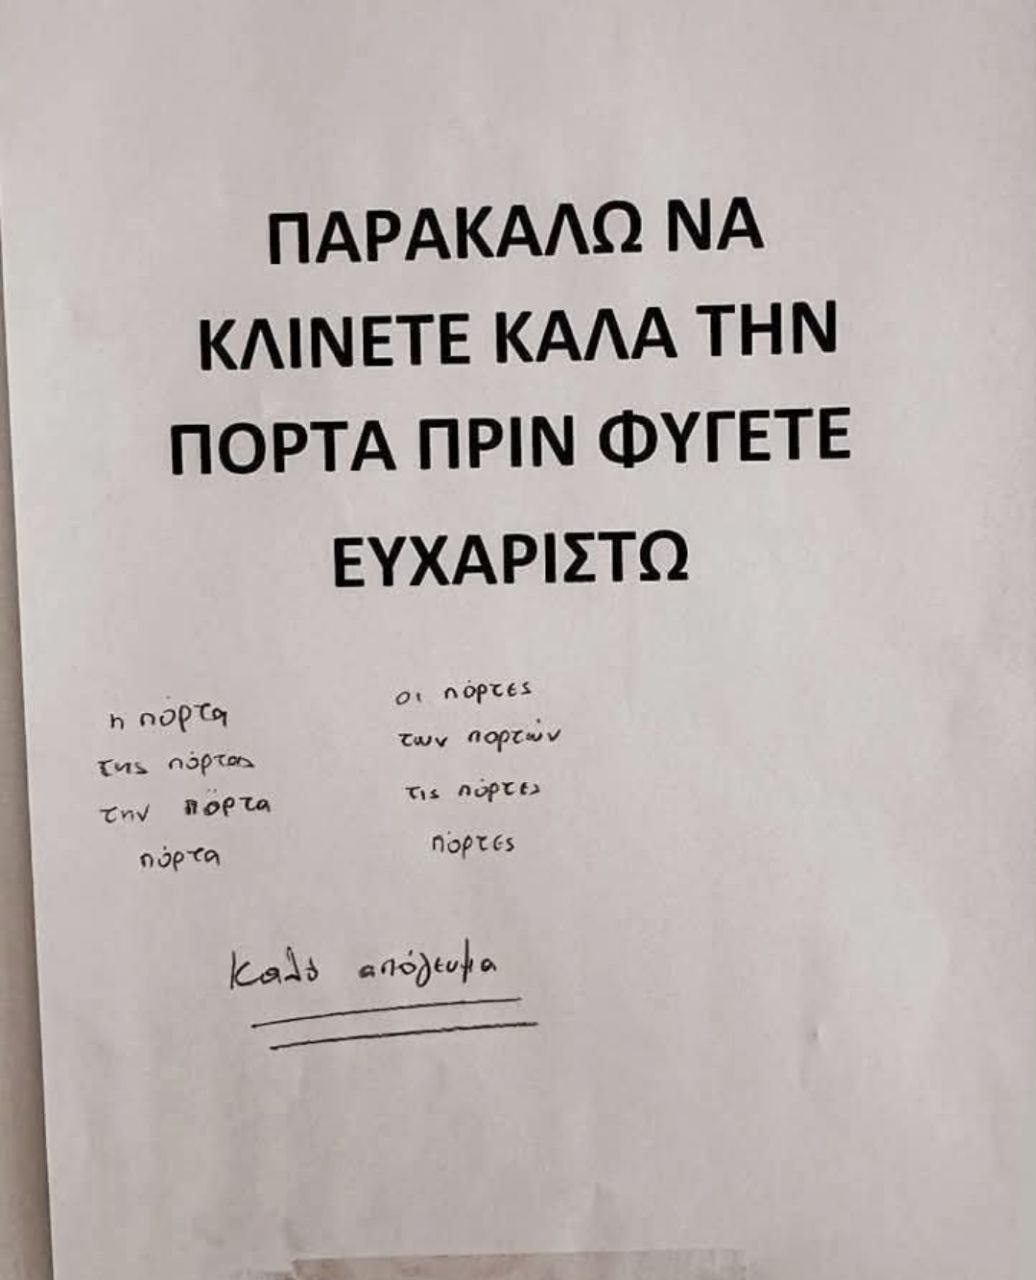 ΠΑΡΑΚΑΛΩ ΝΑ
ΚΛΙΝΕΤΕ ΚΑΛΑ ΤΗΝ
ΠΟΡΤΑ ΠΡΙΝ ΦΥΓΕΤΕ
ΕΥΧΑΡΙΣΤΩ
η πόρτα
της πόρτας
την πόρτα
πόρτα
οι πόρτες
των πορτών
τις πόρτες
πόρτες
Καλό απόγευμα